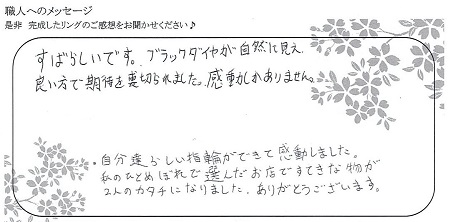 職人へのメッセージ
是非 完成したリングのご感想をお聞かせください♪
すばらしいです。ブラックダイヤが自然に見え
良い方で期待を裏切られました。感動しかありません。
・自分達らしい指輪ができて感動しました。
私のひとめぼれで選んだお店ですてきな物が
2人のカタチになりました。ありがとうございます。